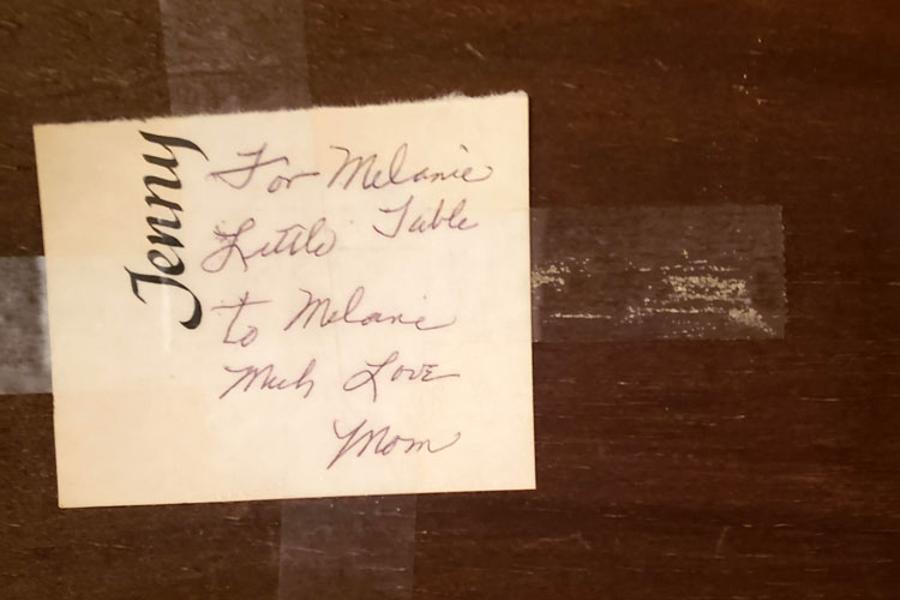 Jenny
For Melanie
Little Table
to Melanie
Much Love
Mom